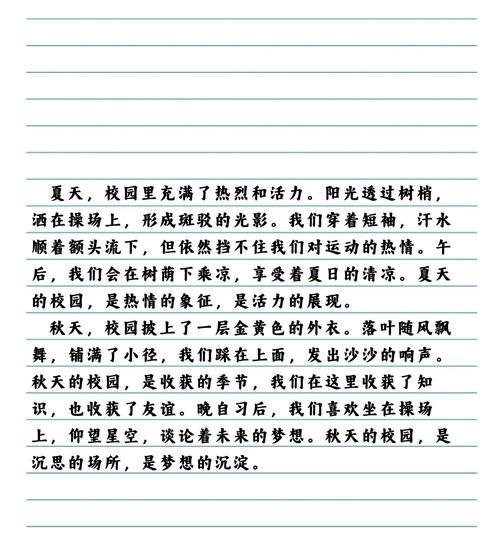 夏天，校园里充满了热烈和活力。阳光透过树梢，
洒在操场上，形成斑驳的光影。我们穿着短袖，汗水
顺着额头流下，但依然挡不住我们对运动的热情。午
后，我们会在树荫下乘凉，享受着夏日的清凉。夏天
的校园，是热情的象征，是活力的展现。
秋天，校园披上了一层金黄色的外衣。落叶随风飘
舞，铺满了小径，我们踩在上面，发出沙沙的响声。
秋天的校园，是收获的季节，我们在这里收获了知
识，也收获了友谊。晚自习后，我们喜欢坐在操场
上，仰望星空，谈论着未来的梦想。秋天的校园，是
沉思的场所，是梦想的沉淀。